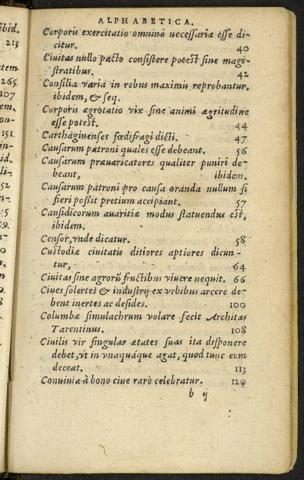 ALPHABETICA.
Corporis exercitatio omninò necessaria esse di-
citur. 40
Ciuitas nullo pacto consistere potest sine magi-
stratibus. 42
Consilia varia in rebus maximis reprobantur.
ibidem, & seq.
Corporis ægrotatio vix sine animi ægritudine
esse potest. 44
Carthaginenses fœdifragi dicti. 47
Causarum patroni quales esse debeant. 56
Causarum præuaricatores qualiter puniri de-
beant, ibidem.
Causarum patroni pro causa oranda nullum si
fieri possit pretium accipiant. 57
Cansidicorum auaritiæ modus statuendus est,
ibidem.
Censor, vnde dicatur. 58
Custodiæ ciuitatis ditiores aptiores dicun-
tur, 64
Ciuitas sine agrorũ fructibus viuere nequit. 66
Ciues solertes & industrij ex vrbibus arcere de-
bent inertes ac desides. 100
Columbæ simulachrum volare fecit Architas
Tarentinus. 108
Ciuilis vir singulas ætates suas ita disponere
debet, vt in vnaquáque agat, quod tunc eum
deceat. 113
Conuiuia à bono ciue rarò celebratur. 120
b ij
ibid.
213
265
107
151
132